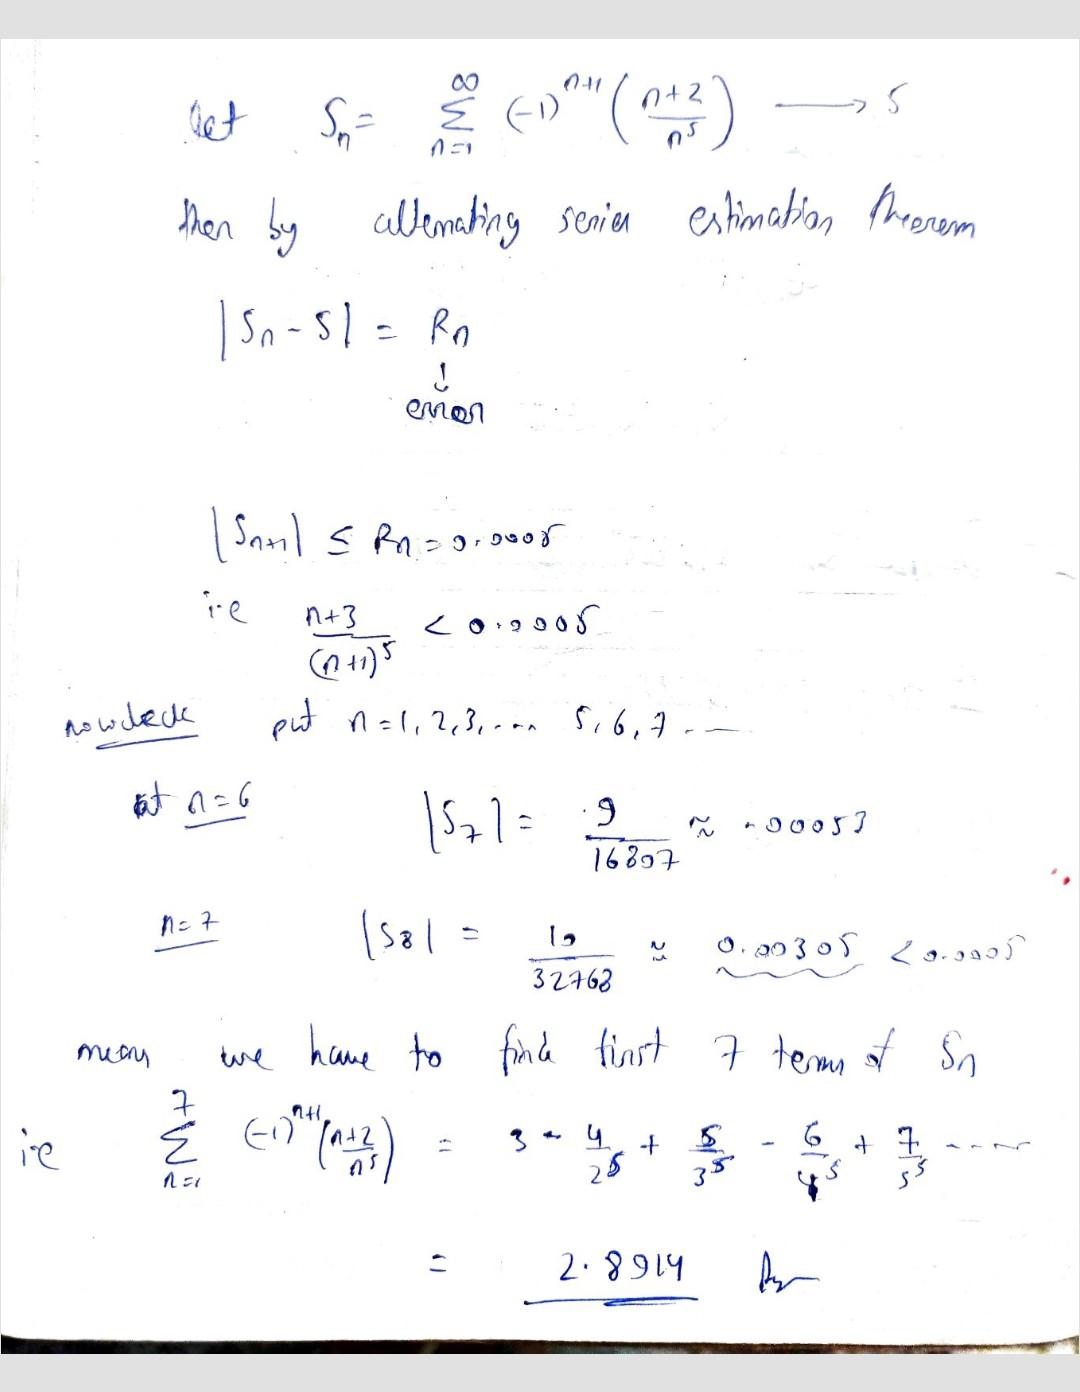 let Sₙ = ∑_{n=1}^{∞} (-1)^{n+1} ( (n+2)/n⁵ ) ⟶ S
then by alternating series estimation theorem
|Sₙ - S| = Rₙ
↓
error
|Sₙ₊₁| ≤ Rₙ = 0.0005
i.e (n+3)/(n+1)⁵ < 0.0005
now check put n = 1, 2, 3, ... 5, 6, 7 ...
at n = 6 |S₇| = 9/16807 ≈ .00053
n = 7 |S₈| = 10/32768 ≈ 0.00305 < 0.0005
mean we have to find first 7 terms of Sₙ
ie ∑_{n=1}^{7} (-1)^{n+1} ( (n+2)/n⁵ ) = 3 - 4/2⁵ + 5/3⁵ - 6/4⁵ + 7/5⁵ ....
= 2.8914